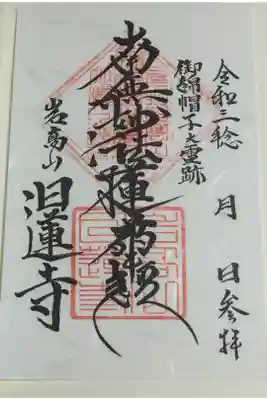 令和三稔　月　日参拝
御綿帽子大靈跡
南無妙法蓮華經
岩高山
日蓮寺